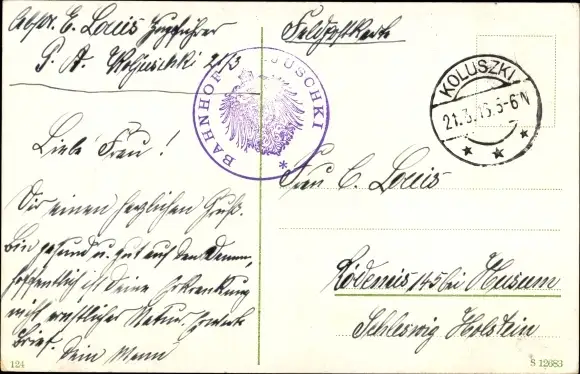 Abs. E. Louis Zugführer
P. A. Koljuschki 21/3
Feldpostkarte
BAHNHOF KOLJUSCHKI
KOLUSZKI
21.3.16. 5-6N
Liebe Frau!
Dir einen herzlichen Gruß.
Bin gesund u. gut auf dem Damm,
hoffentlich ist Deine Erkrankung
nicht ernstlicher Natur. Erwarte
Brief. Dein Mann
Frau C. Louis
Rödemis 145 bei Husum
Schleswig Holstein
124
S 12683